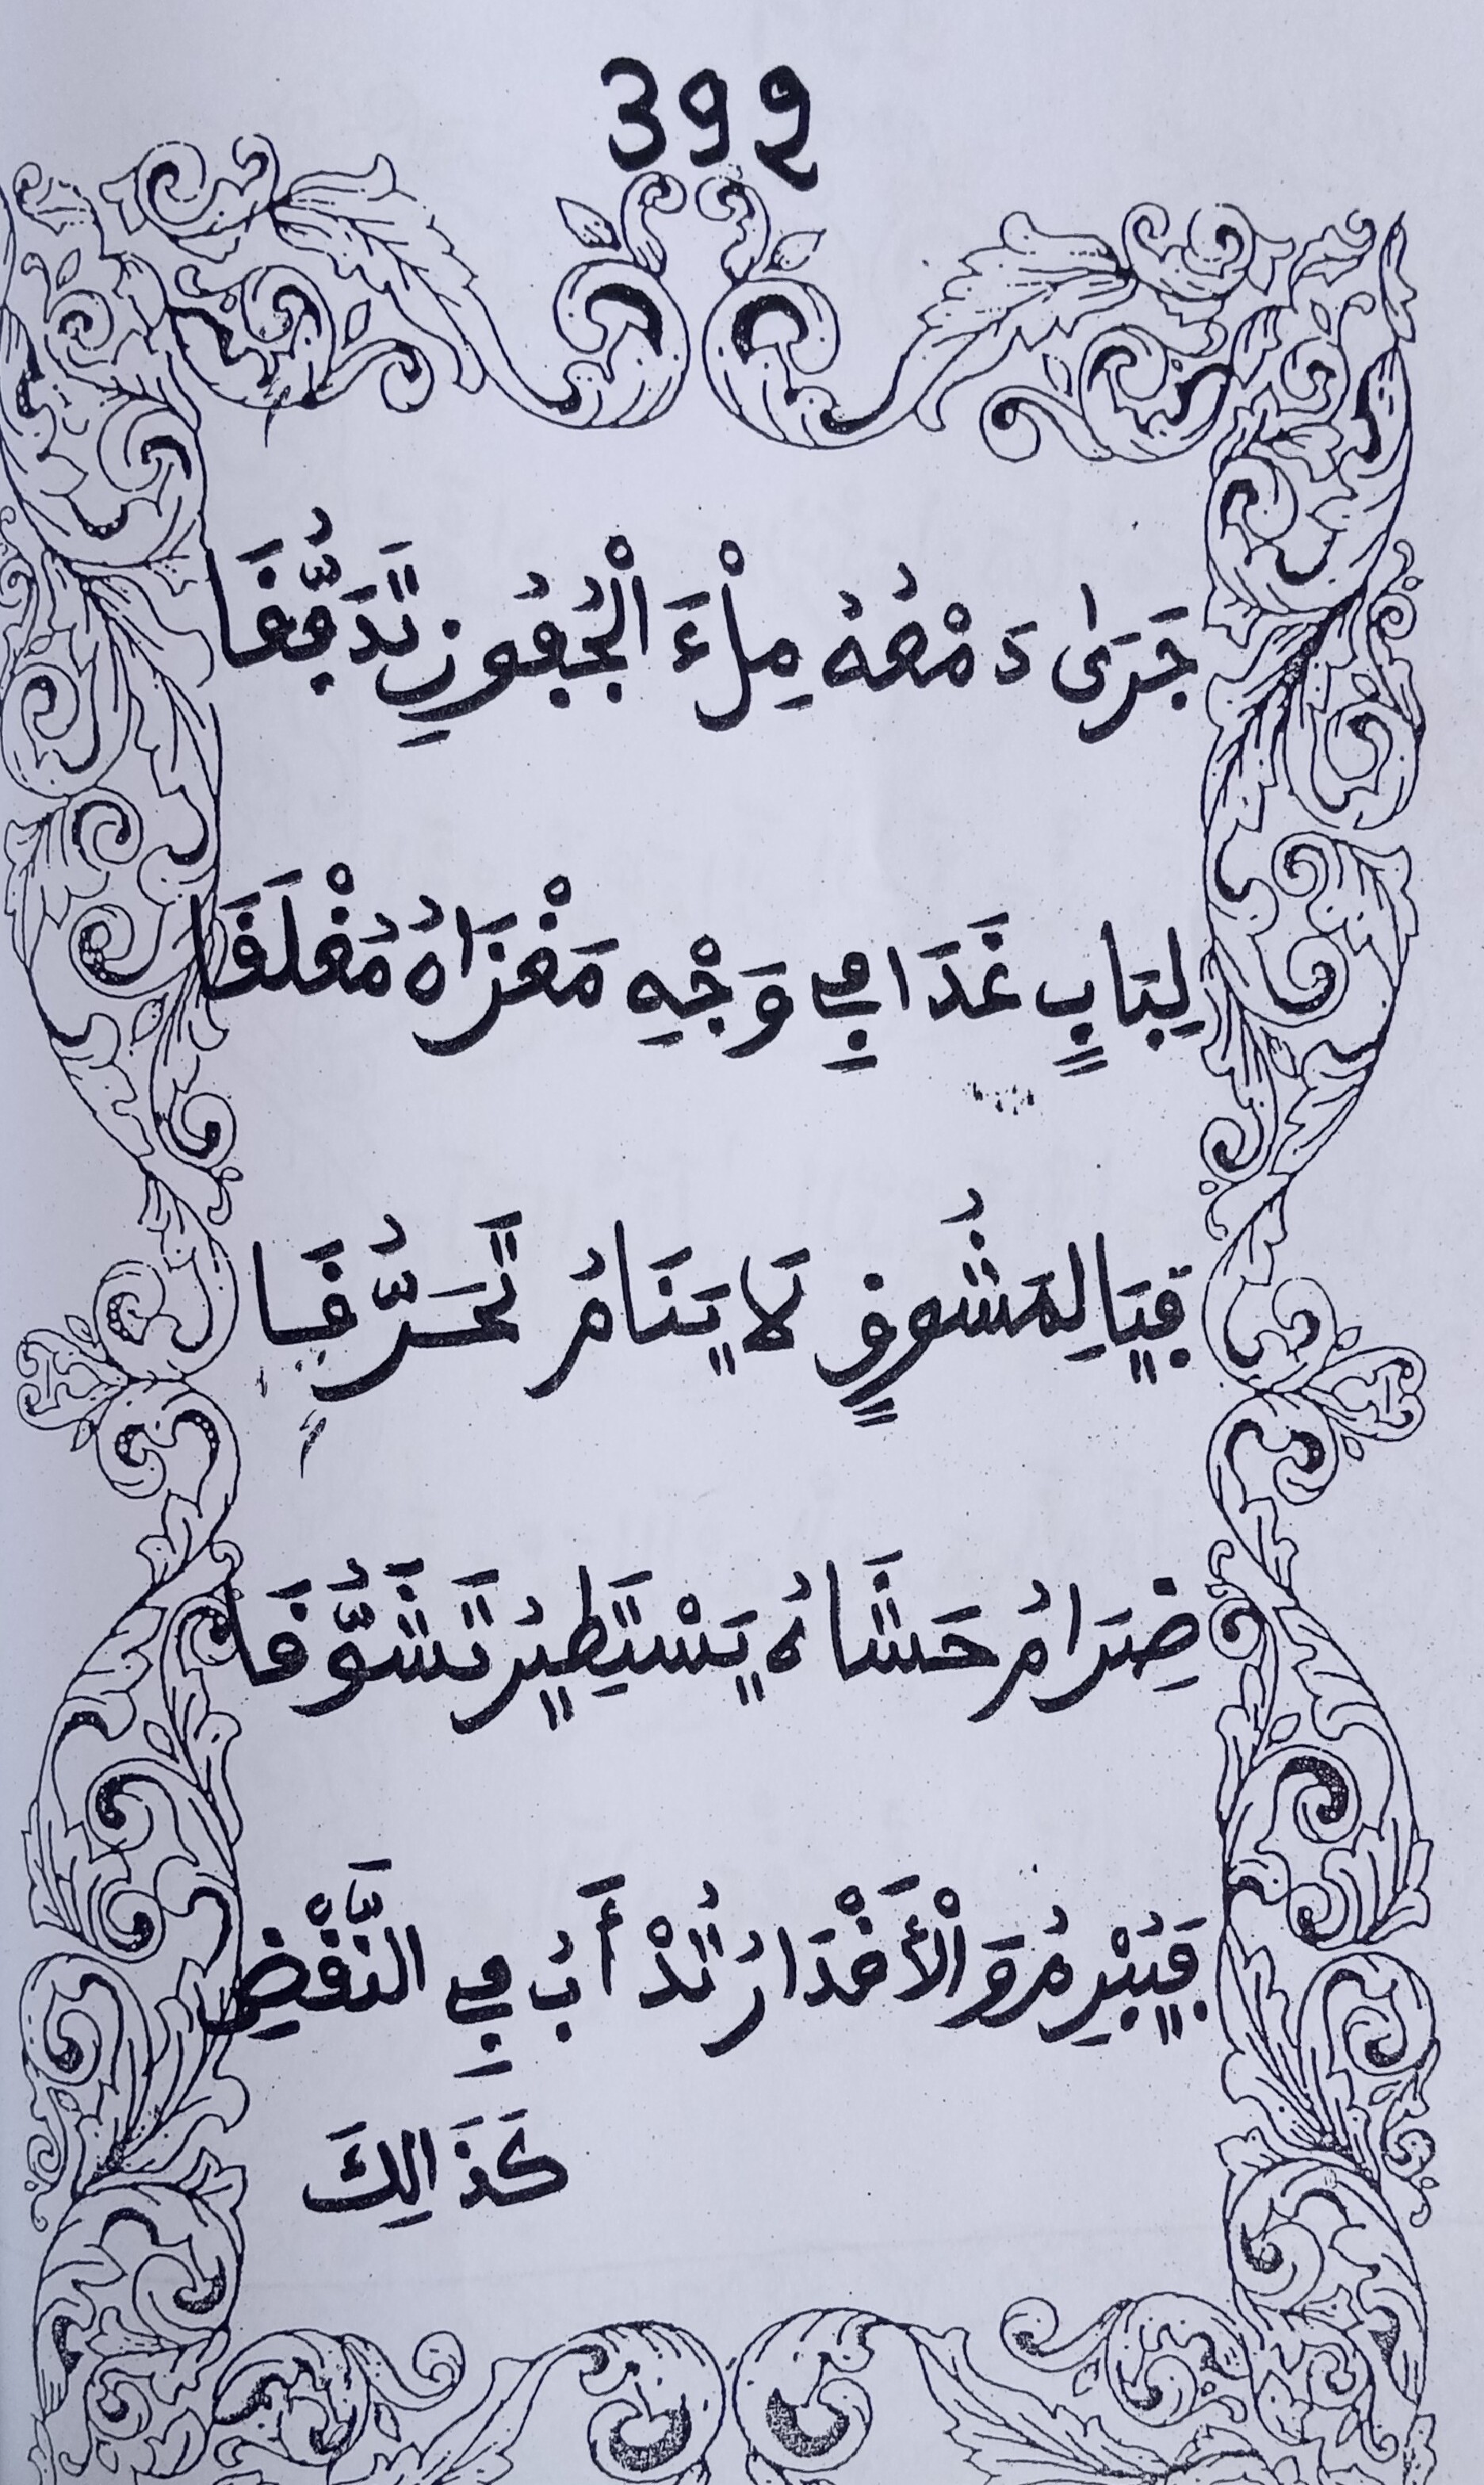 399
جَرَىٰ دَمْعُهُ مِلْءَ الْجُفُونِ تَدَفُّقَا
لِبَابٍ غَدَا فِي وَجْهِ مَغْزَاهُ مُغْلَقَا
فَيَا لِمَشُوقٍ لَا يَنَامُ تَحَرُّقَا
ضِرَامُ حَشَاهُ يَسْتَطِيرُ تَشَوُّقَا
فَيُبْرِمُ وَالْأَقْدَارُ تَدْأَبُ فِي النَّقْضِ
كَذَالِكَ